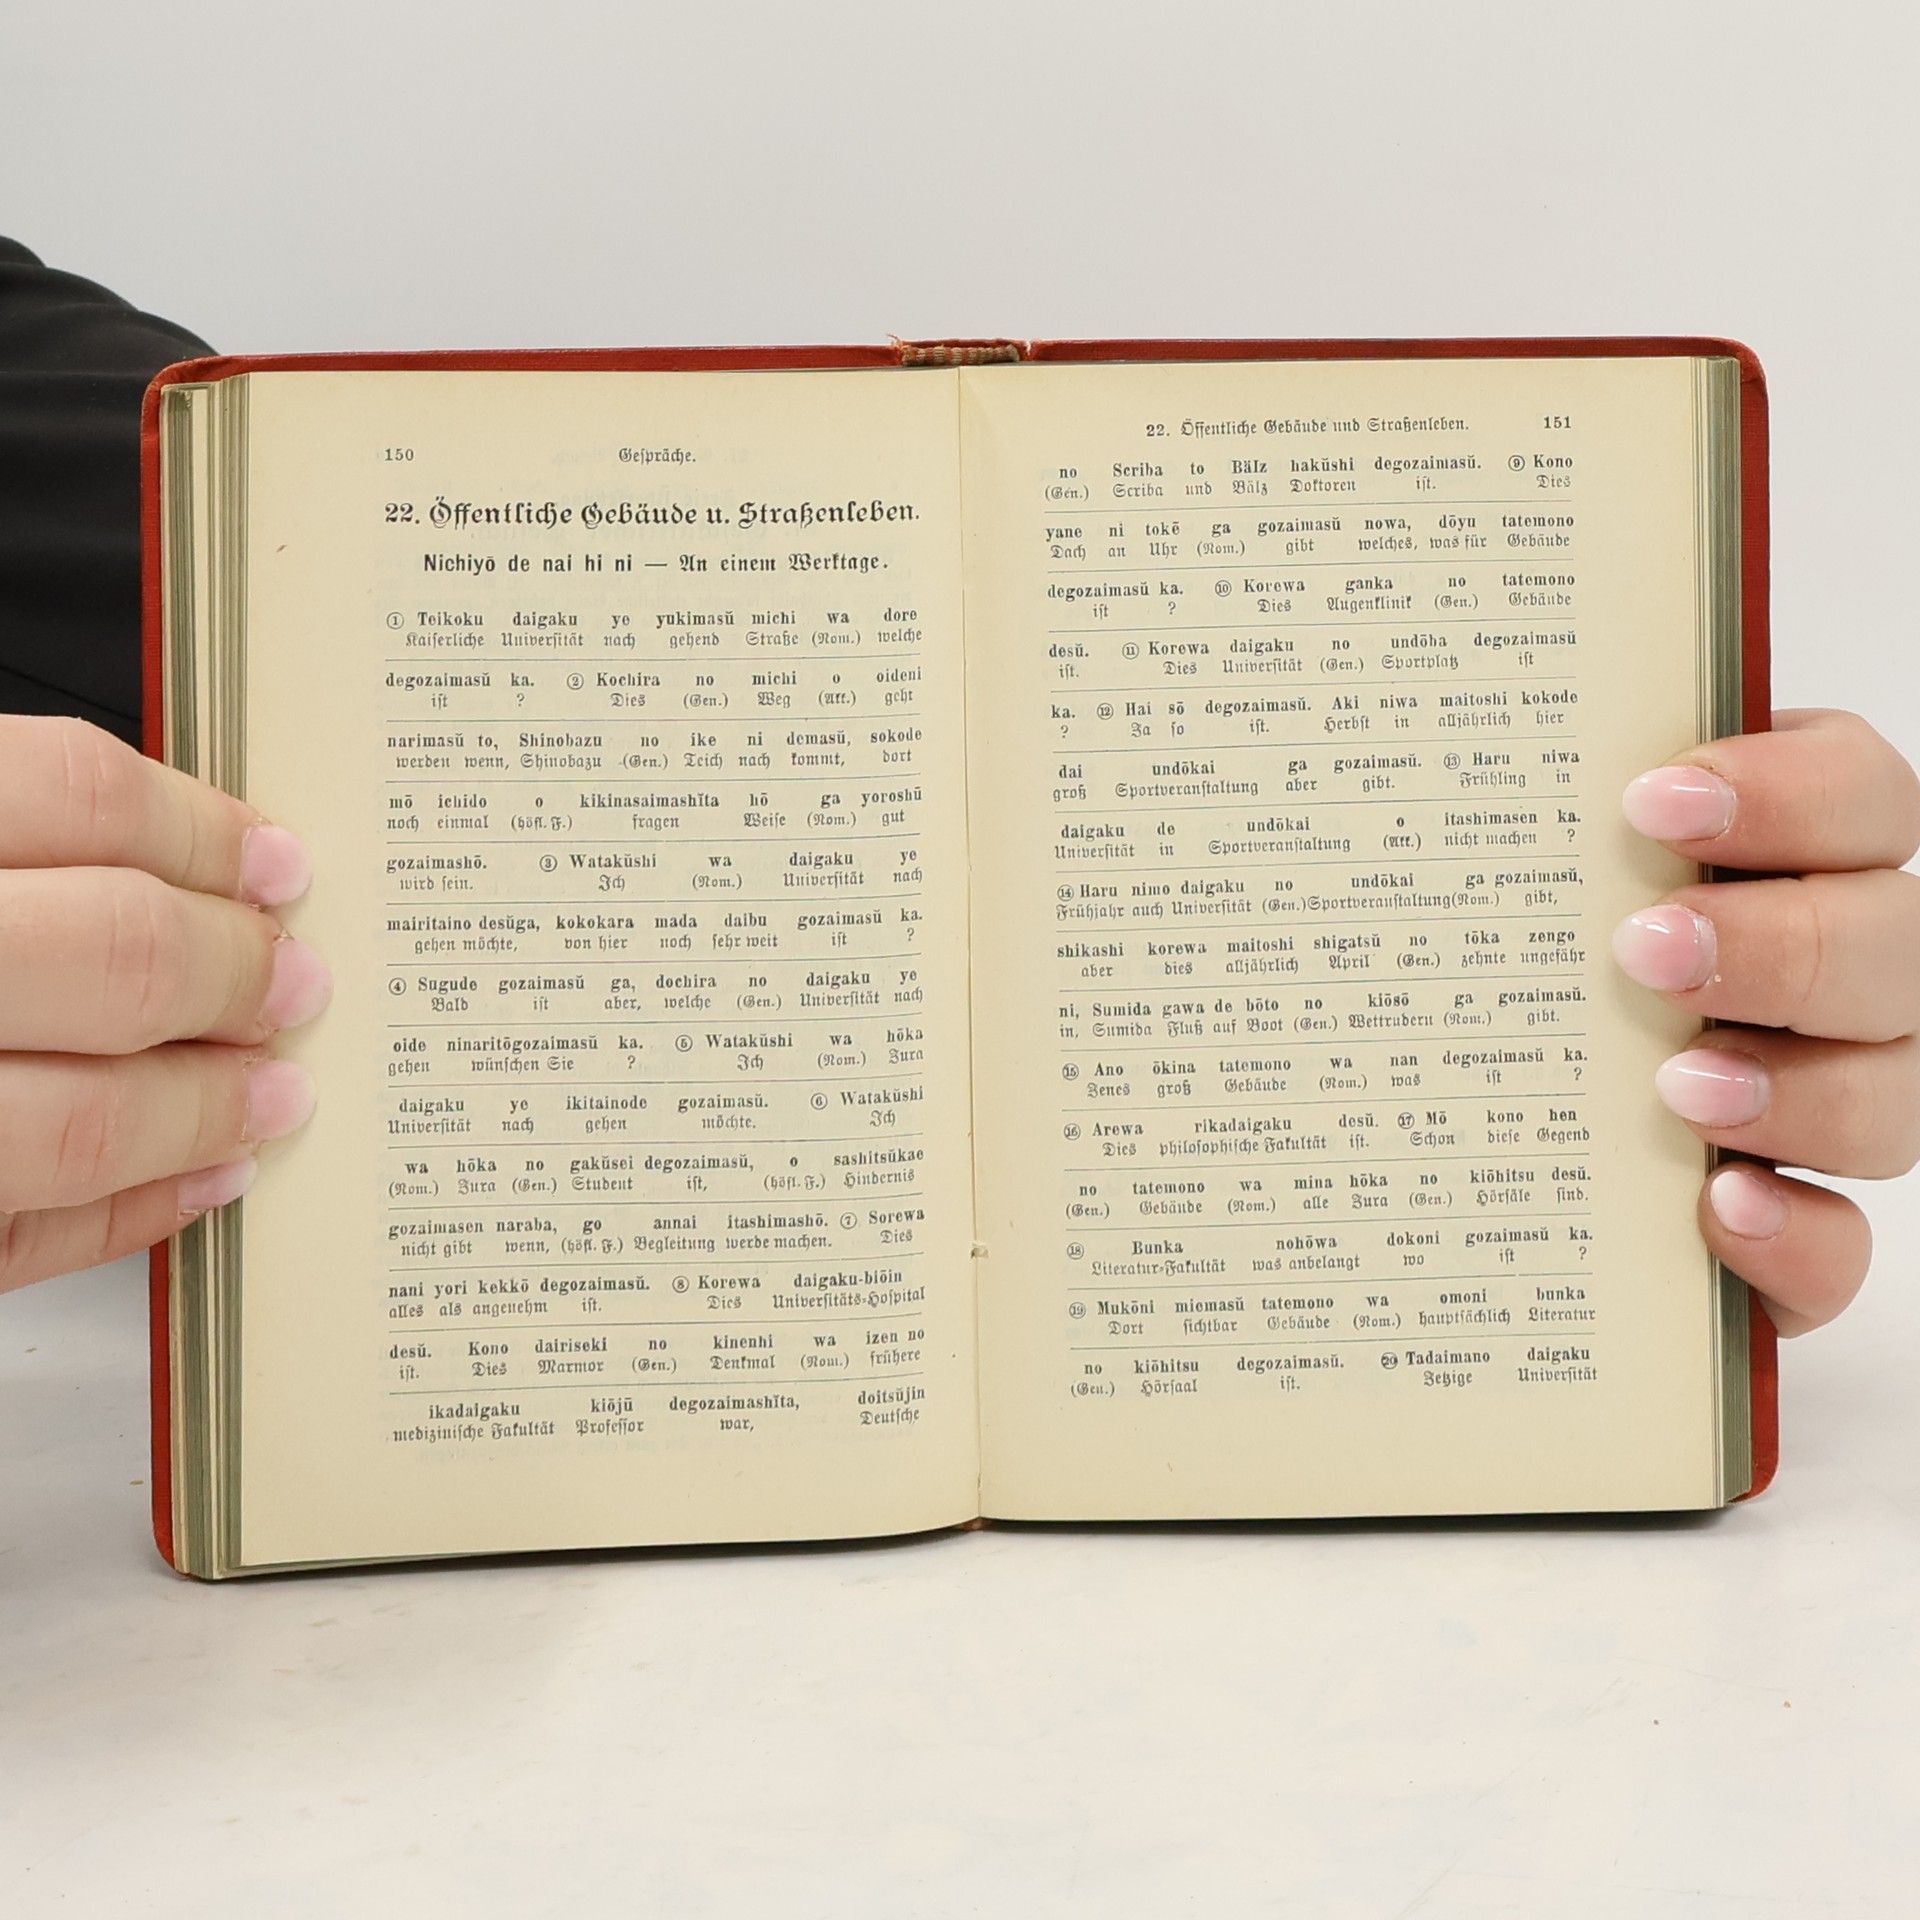 150 Gespräche.
22. Öffentliche Gebäude u. Straßenleben.
Nichiyō de nai hi ni — An einem Werktage.
① Teikoku daigaku ye yukimasŭ michi wa dore
Kaiserliche Universität nach gehend Straße (Nom.) welche
degozaimasŭ ka. ② Kochira no michi o oideni
ist ? Dies (Gen.) Weg (Akk.) geht
narimasŭ to, Shinobazu no ike ni demasŭ, sokode
werden wenn, Shinobazu (Gen.) Teich nach kommt, dort
mō ichido o kikinasaimashĭta hō ga yoroshŭ
noch einmal (höfl. F.) fragen Weise (Nom.) gut
gozaimashō. ③ Watakŭshi wa daigaku ye
wird sein. Ich (Nom.) Universität nach
mairitaino desŭga, kokokara mada daibu gozaimasŭ ka.
gehen möchte, von hier noch sehr weit ist ?
④ Sugude gozaimasŭ ga, dochira no daigaku ye
Bald ist aber, welche (Gen.) Universität nach
oide ninaritōgozaimasŭ ka. ⑤ Watakŭshi wa hōka
gehen wünschen Sie ? Ich (Nom.) Jura
daigaku ye ikitainode gozaimasŭ. ⑥ Watakŭshi
Universität nach gehen möchte. Ich
wa hōka no gakŭsei degozaimasŭ, o sashitsŭkae
(Nom.) Jura (Gen.) Student ist, (höfl. F.) Hindernis
gozaimasen naraba, go annai itashimashō. ⑦ Sorewa
nicht gibt wenn, (höfl. F.) Begleitung werde machen. Dies
nani yori kekkō degozaimasŭ. ⑧ Korewa daigaku-biōin
alles als angenehm ist. Dies Universitäts-Hospital
desŭ. Kono dairiseki no kinenhi wa izen no
ist. Dies Marmor (Gen.) Denkmal (Nom.) frühere
ikadaigaku kiōjŭ degozaimashĭta, doitsŭjin
medizinische Fakultät Professor war, Deutsche
22. Öffentliche Gebäude und Straßenleben. 151
no Scriba to Bälz hakŭshi degozaimasŭ. ⑨ Kono
(Gen.) Scriba und Bälz Doktoren ist. Dies
yane ni tokē ga gozaimasŭ nowa, dōyu tatemono
Dach an Uhr (Nom.) gibt welches, was für Gebäude
degozaimasŭ ka. ⑩ Korewa ganka no tatemono
ist ? Dies Augenklinik (Gen.) Gebäude
desŭ. ⑪ Korewa daigaku no undōba degozaimasŭ
ist. Dies Universität (Gen.) Sportplatz ist
ka. ⑫ Hai sō degozaimasŭ. Aki niwa maitoshi kokode
? Ja so ist. Herbst in alljährlich hier
dai undōkai ga gozaimasŭ. ⑬ Haru niwa
groß Sportveranstaltung aber gibt. Frühling in
daigaku de undōkai o itashimasen ka.
Universität in Sportveranstaltung (Akk.) nicht machen ?
⑭ Haru nimo daigaku no undōkai ga gozaimasŭ,
Frühjahr auch Universität (Gen.) Sportveranstaltung (Nom.) gibt,
shikashi korewa maitoshi shigatsŭ no tōka zengo
aber dies alljährlich April (Gen.) zehnte ungefähr
ni, Sumida gawa de bōto no kiōsō ga gozaimasŭ.
in, Sumida Fluß auf Boot (Gen.) Wettrudern (Nom.) gibt.
⑮ Ano ōkina tatemono wa nan degozaimasŭ ka.
Jenes groß Gebäude (Nom.) was ist ?
⑯ Arewa rikadaigaku desŭ. ⑰ Mō kono hen
Dies philosophische Fakultät ist. Schon diese Gegend
no tatemono wa mina hōka no kiōhitsu desŭ.
(Gen.) Gebäude (Nom.) alle Jura (Gen.) Hörsäle sind.
⑱ Bunka nohōwa dokoni gozaimasŭ ka.
Literatur-Fakultät was anbelangt wo ist ?
⑲ Mukōni miemasŭ tatemono wa omoni bunka
Dort sichtbar Gebäude (Nom.) hauptsächlich Literatur
no kiōhitsu degozaimasŭ. ⑳ Tadaimano daigaku
(Gen.) Hörsaal ist. Jetzige Universität